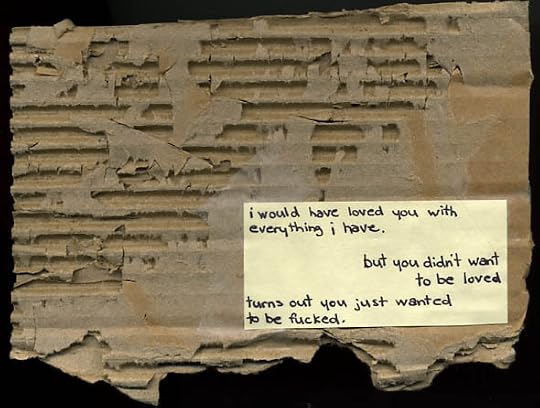 i would have loved you with
everything i have.
but you didn't want
to be loved
turns out you just wanted
to be fucked.